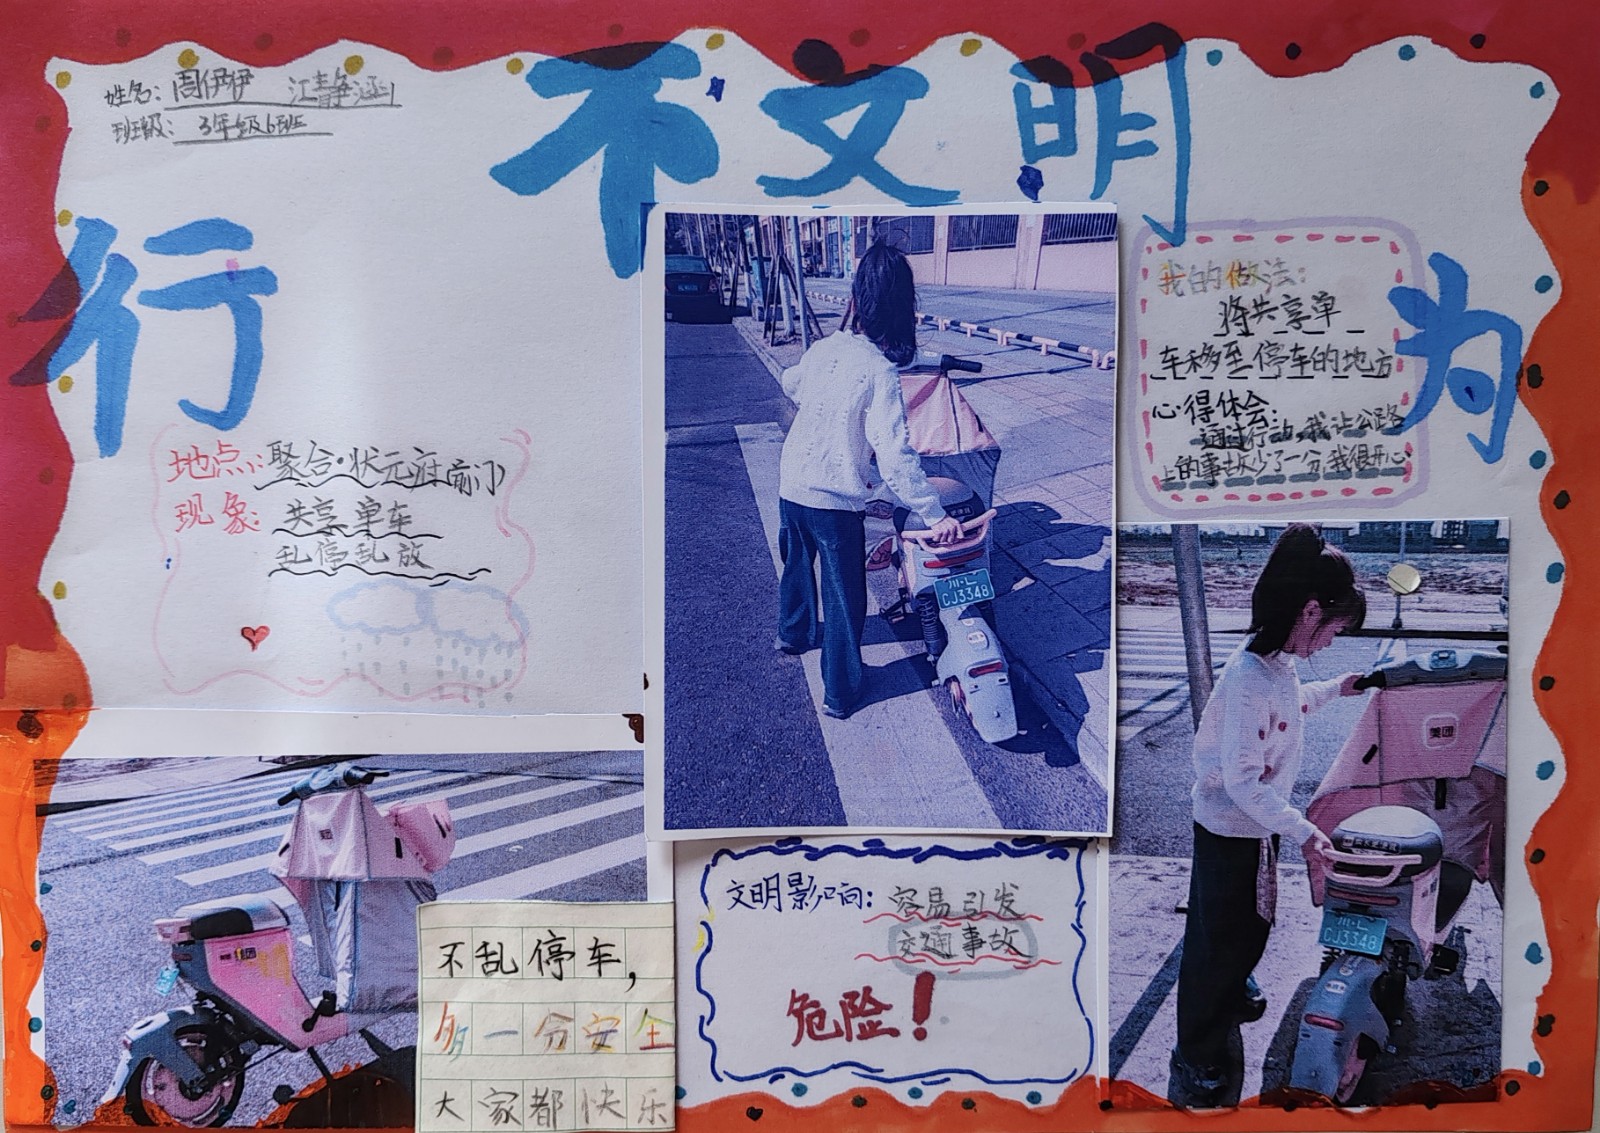 姓名：周伊伊 江静涵
班级：3年级6班
不文明
行
为
地点：聚合·状元府前门
现象：共享单车
乱停乱放
川·L
CJ3348
我的做法：
将共享单
车移至停车的地方
心得体会：
通过行动，我让公路
上的事故少了一分，我很开心
美团
川·L
CJ3348
不乱停车，
多一分安全
大家都快乐
文明影响：容易引发
交通事故
危险！